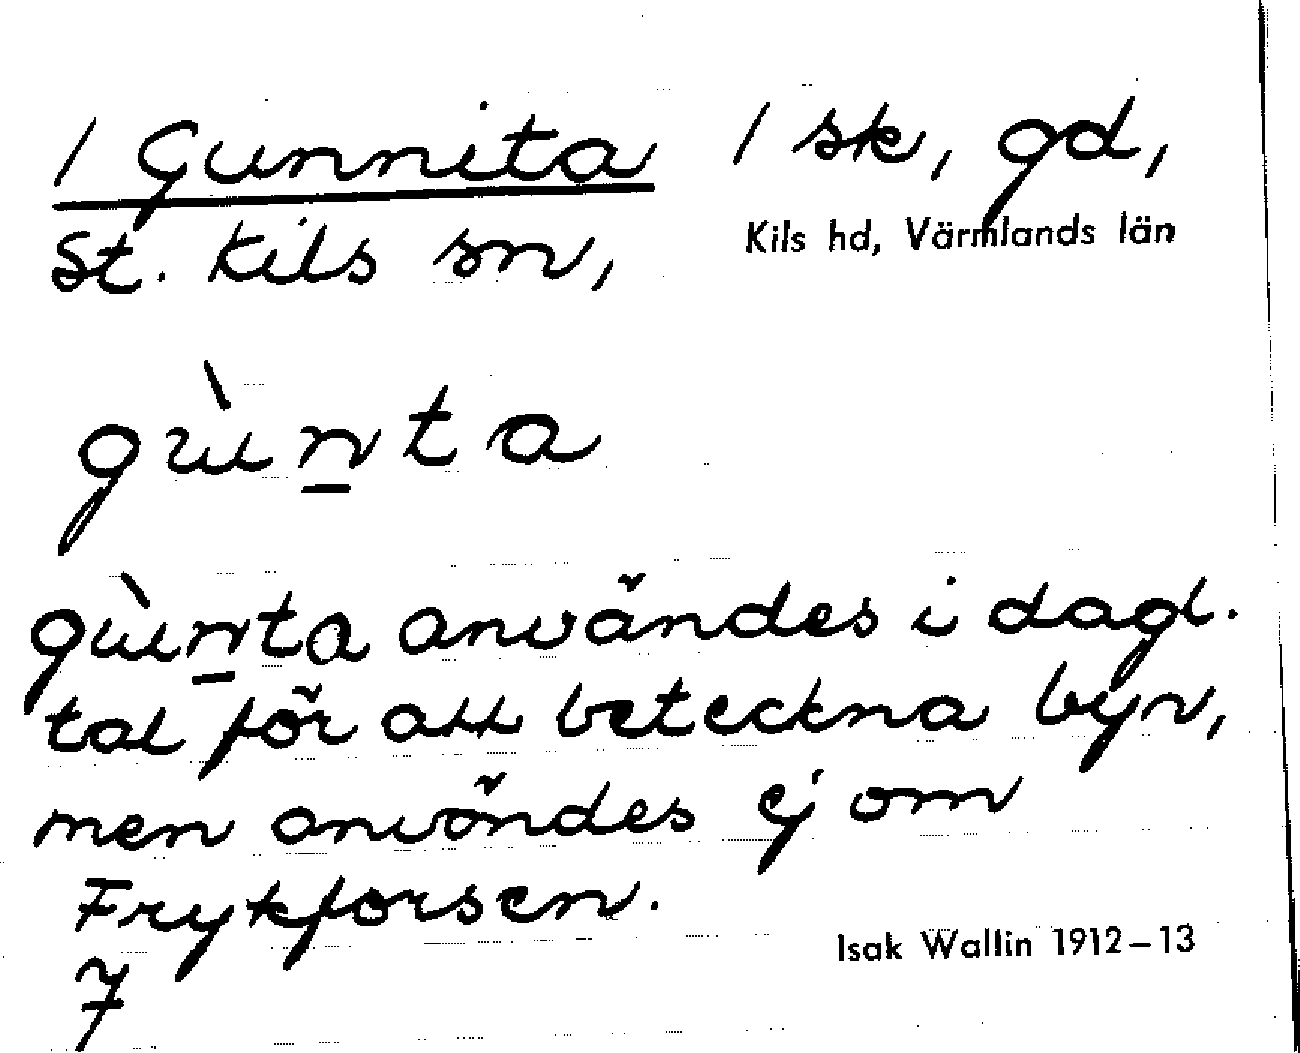 / Gunnita / sk, gd,
St. Kils sn, Kils hd, Värmlands län
gùn̲ta
gùn̲ta användes i dagl.
tal för att beteckna byn,
men användes ej om
Frykforsen.
7
Isak Wallin 1912–13